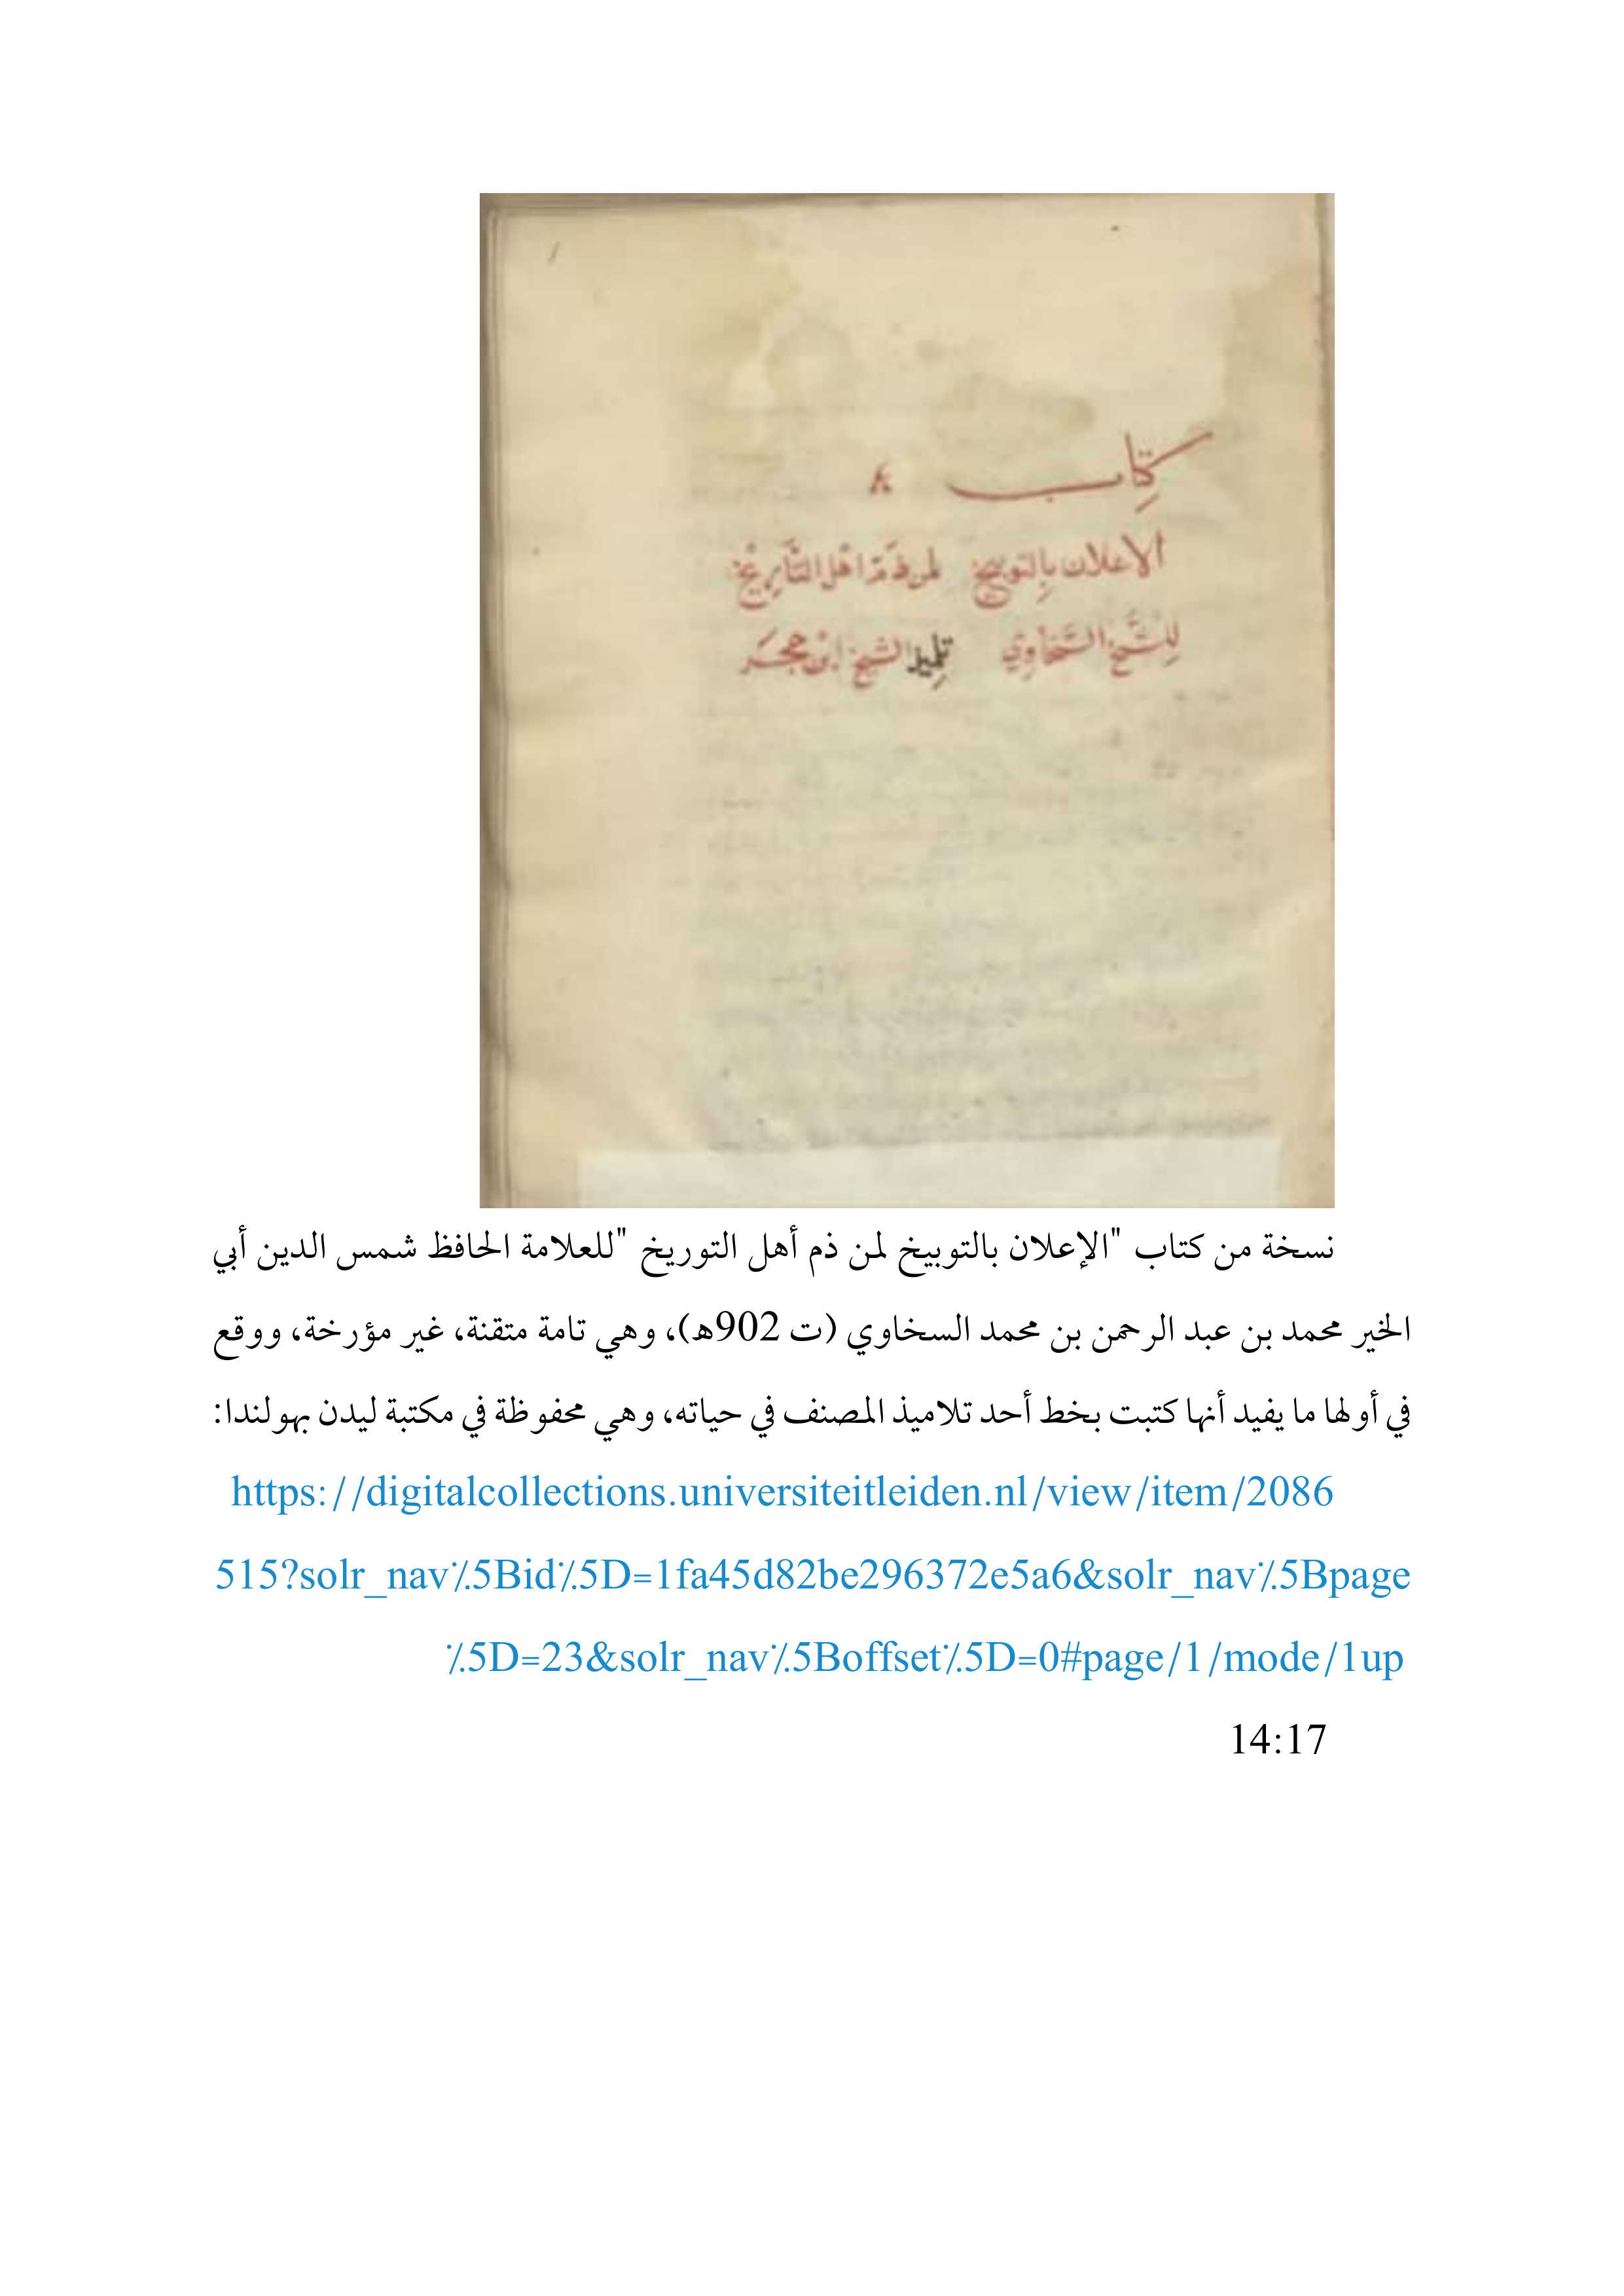 كتاب ٨
الاعلان بِالتوبيخ لمن ذمّ اهْل التَّأريخ
لِلشَّيخ السَّخاوِي تلِميذ الشيخ ابْن حجَر
نسخة من كتاب "الإعلان بالتوبيخ لمن ذم أهل التوريخ "للعلامة الحافظ شمس الدين أبي
الخير محمد بن عبد الرحمن بن محمد السخاوي (ت 902ه)، وهي تامة متقنة، غير مؤرخة، ووقع
في أولها ما يفيد أنها كتبت بخط أحد تلاميذ المصنف في حياته، وهي محفوظة في مكتبة ليدن بهولندا:
https://digitalcollections.universiteitleiden.nl/view/item/2086
515?solr_nav٪5Bid٪5D=1fa45d82be296372e5a6&solr_nav٪5Bpage
٪5D=23&solr_nav٪5Boffset٪5D=0#page/1/mode/1up
14:17